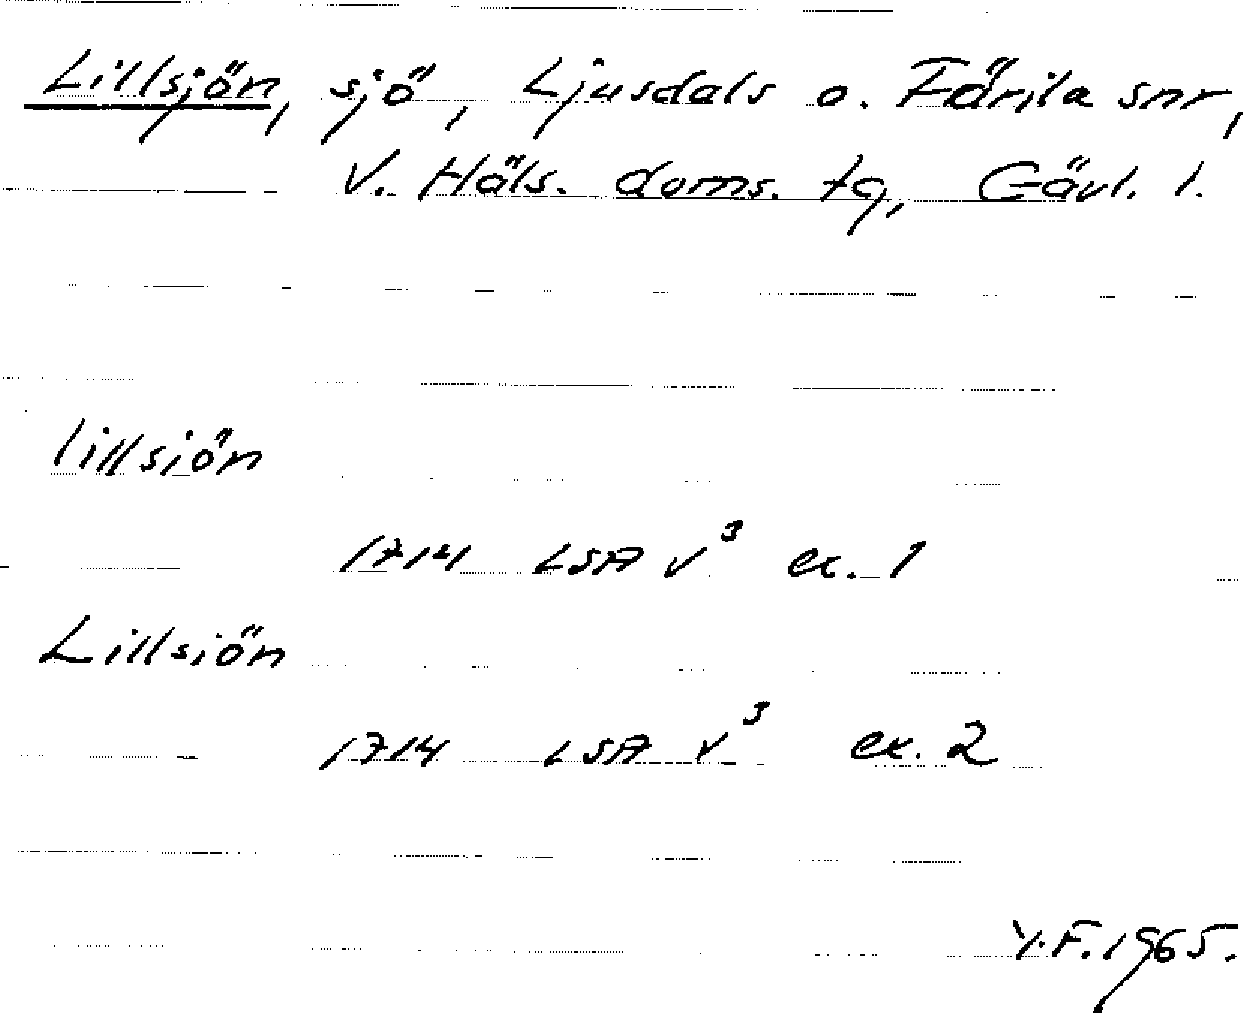 Lillsjön, sjö, Ljusdals o. Färila snr,
V. Häls. doms. tg, Gävl. l.
lillsiön
1714 LSA V³ ex. 1
Lillsiön
1714 LSA V³ ex. 2
Y.F. 1965.